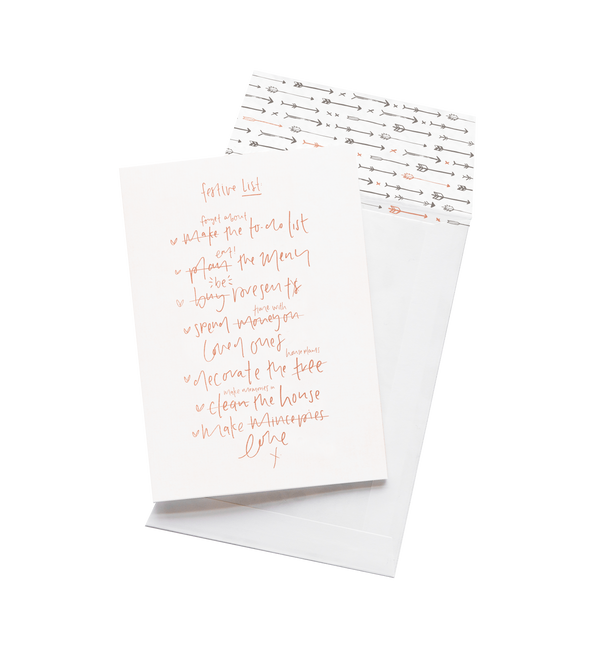 festive list
forget about
make the to-do list
eat!
plan the menu
be
buy presents
time with
spend money on
loved ones
decorate the tree
make memories in
clean the house
make mincepies
love
x